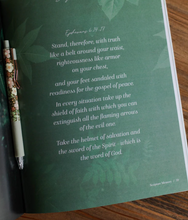 Ephesians 6:14-17
Stand, therefore, with truth
like a belt around your waist,
righteousness like armor
on your chest,
and your feet sandaled with
readiness for the gospel of peace.
In every situation take up the
shield of faith with which you can
extinguish all the flaming arrows
of the evil one.
Take the helmet of salvation and
the sword of the Spirit - which is
the word of God.